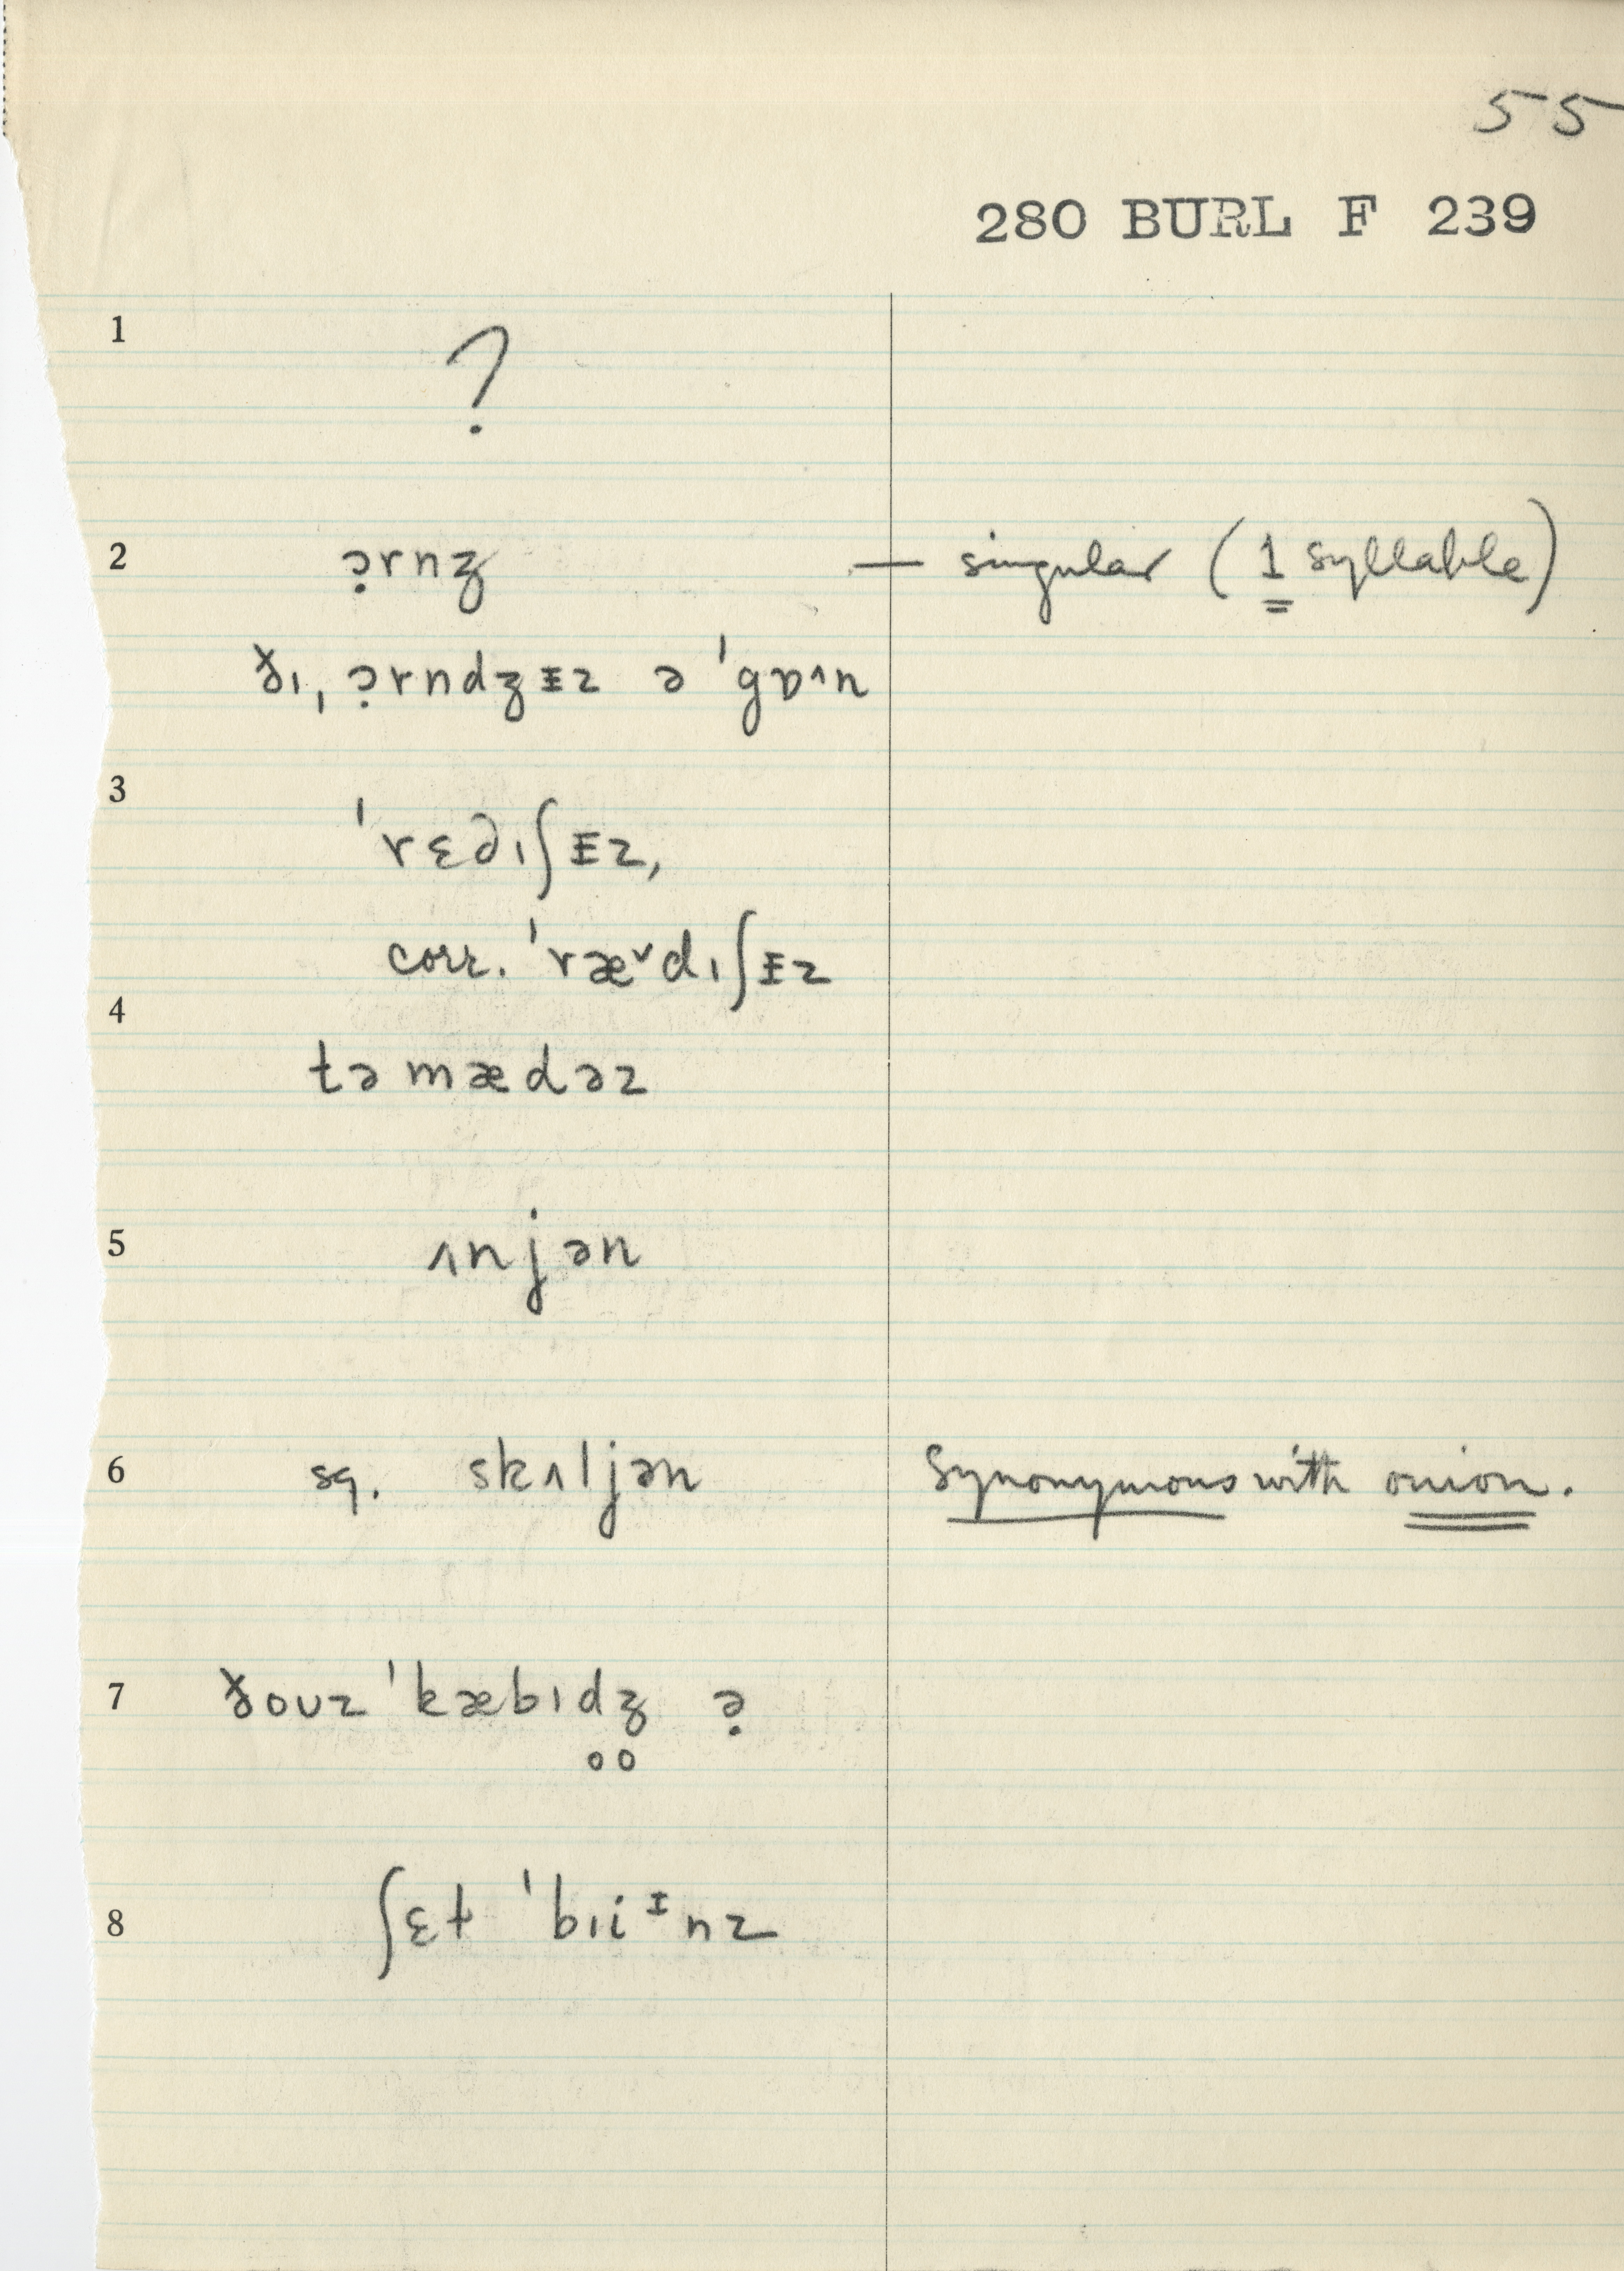 55
280 BURL F 239
1
?
2 ə̣rnʒ — singular (1 syllable)
ɣ̵ı, ə̣rndʒᵻz ə ˈgɒ^n
3
ˈrɛ∂ıʃᵻz,
corr. ˈræˇdıʃᵻz
4
təmædəz
5 ʌnjən
6 sq. skʌljən Synonymous with onion.
7 ɣ̵oʊz ˈkæbıd̥ʒ̥ ə̣
8 ʃɛt ˈbıiᵻnz